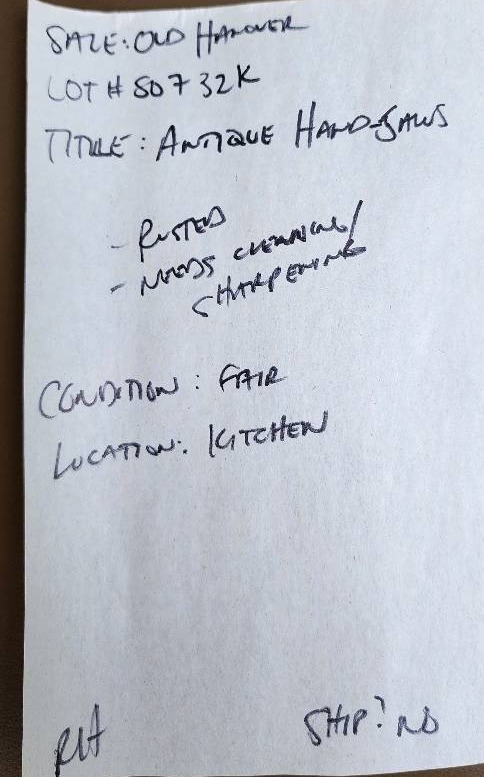 SALE: OLD HANOVER
LOT # 50732K
TITLE: ANTIQUE HAND-SAWS
- RUSTED
- NEEDS CLEANING/
SHARPENING
CONDITION: FAIR
LOCATION: KITCHEN
RH
SHIP? NO